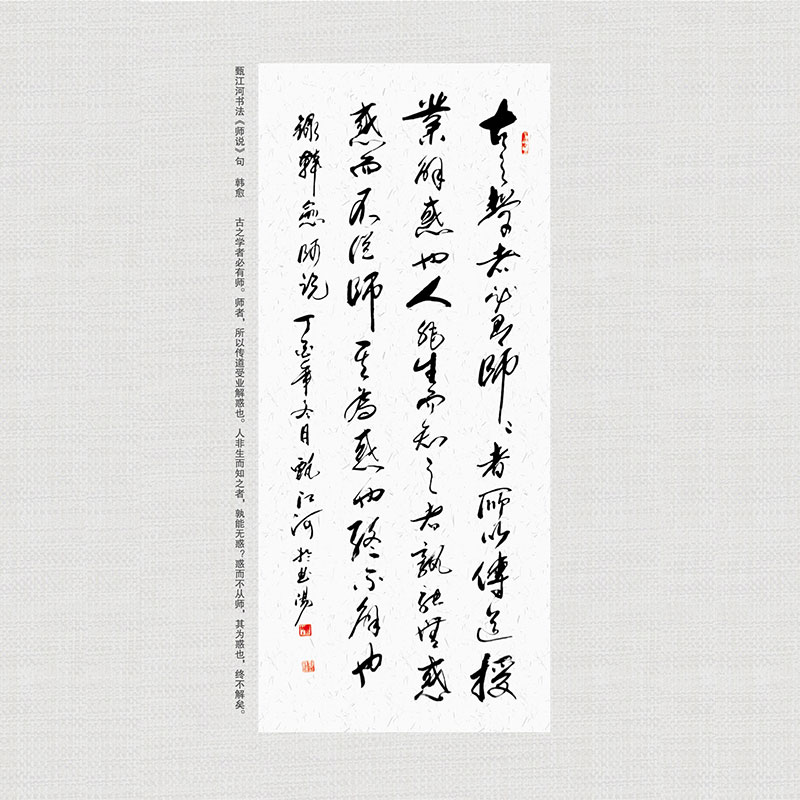 古之學者必有師〻者所以傳道授
業解惑也人非生而知之者孰能無惑
惑而不從師其為惑也終不解也
錄韓愈師說丁酉年冬月甄江河於
甄江河书法《师说》句 韩愈 古之学者必有师。师者，所以传道受业解惑也。人非生而知之者，孰能无惑？惑而不从师，其为惑也，终不解矣。